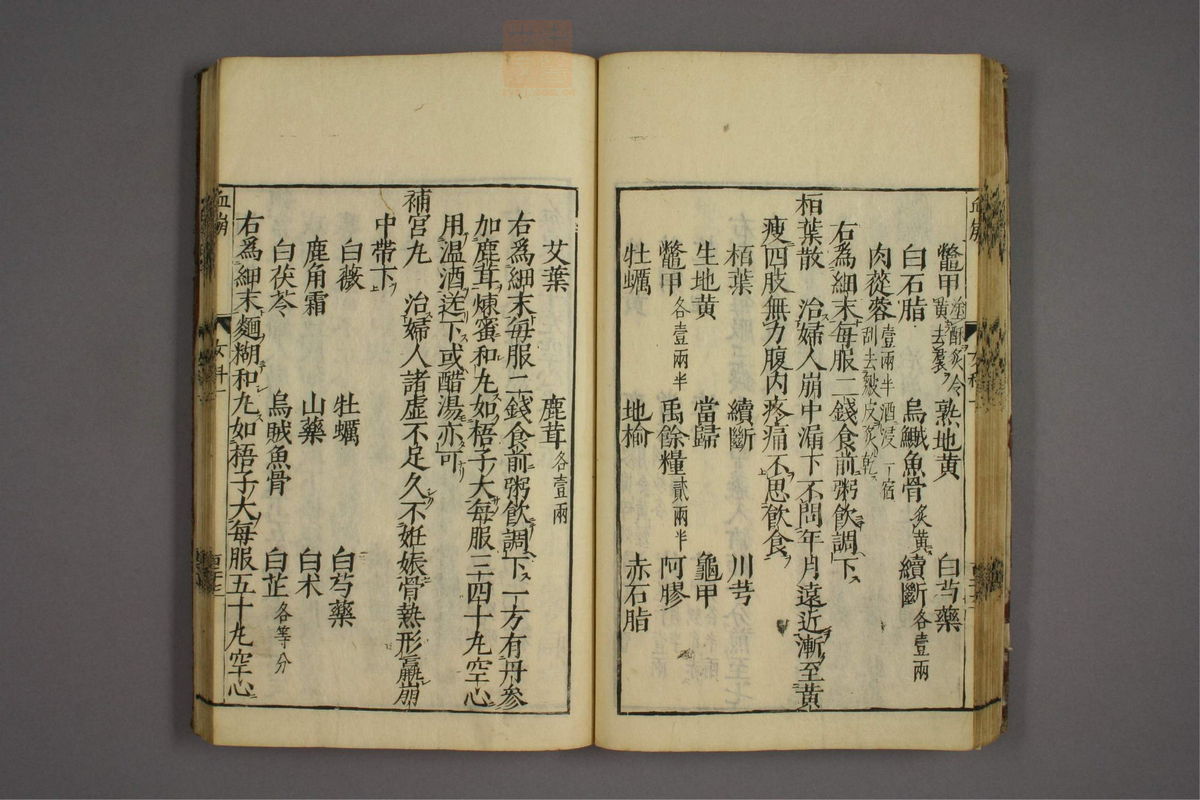 鼈甲塗酥炙令黃去裙 熟地黃 白芍藥
白石脂 烏鰂魚骨炙黃 續斷各壹兩
肉蓯蓉壹兩半酒浸一宿刮去皴皮炙乾
右爲細末每服二錢食前粥飲調下
栢葉散 治婦人崩中漏下不問年月遠近漸至黃
瘦四肢無力腹內疼痛不思飲食
栢葉 續斷 川芎
生地黃 當歸 龜甲
鼈甲各壹兩半 禹餘糧貳兩半 阿膠
牡蠣 地榆 赤石脂
艾葉 鹿茸各壹兩
右爲細末每服二錢食前粥飲調下一方有丹參
加鹿茸煉蜜和丸如梧子大每服三四十丸空心
用溫酒送下或醋湯亦可
補宮丸 治婦人諸虛不足久不妊娠骨熱形羸崩
中帶下
白薇 牡蠣 白芍藥
鹿角霜 山藥 白术
白茯苓 烏賊魚骨 白芷各等分
右爲細末麵糊和丸如梧子大每服五十丸空心
血崩
女科一